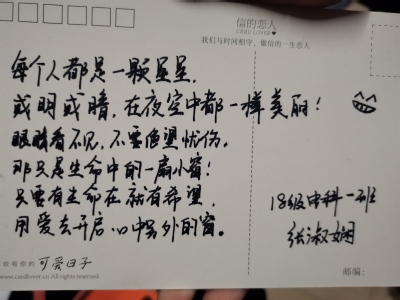 信的恋人
CARD LOVER
我们与时间相守，做信的一生恋人
每个人都是一颗星星，
或明或暗，在夜空中都一样美丽！
眼睛看不见，不要绝望忧伤。
那只是生命中的一扇小窗！
只要有生命在就有希望，
用爱去开启心中另外的窗。
18级中科一班
张淑娴
致看你的 可爱日子
www.cardlover.cn All rights reserved.
邮编：